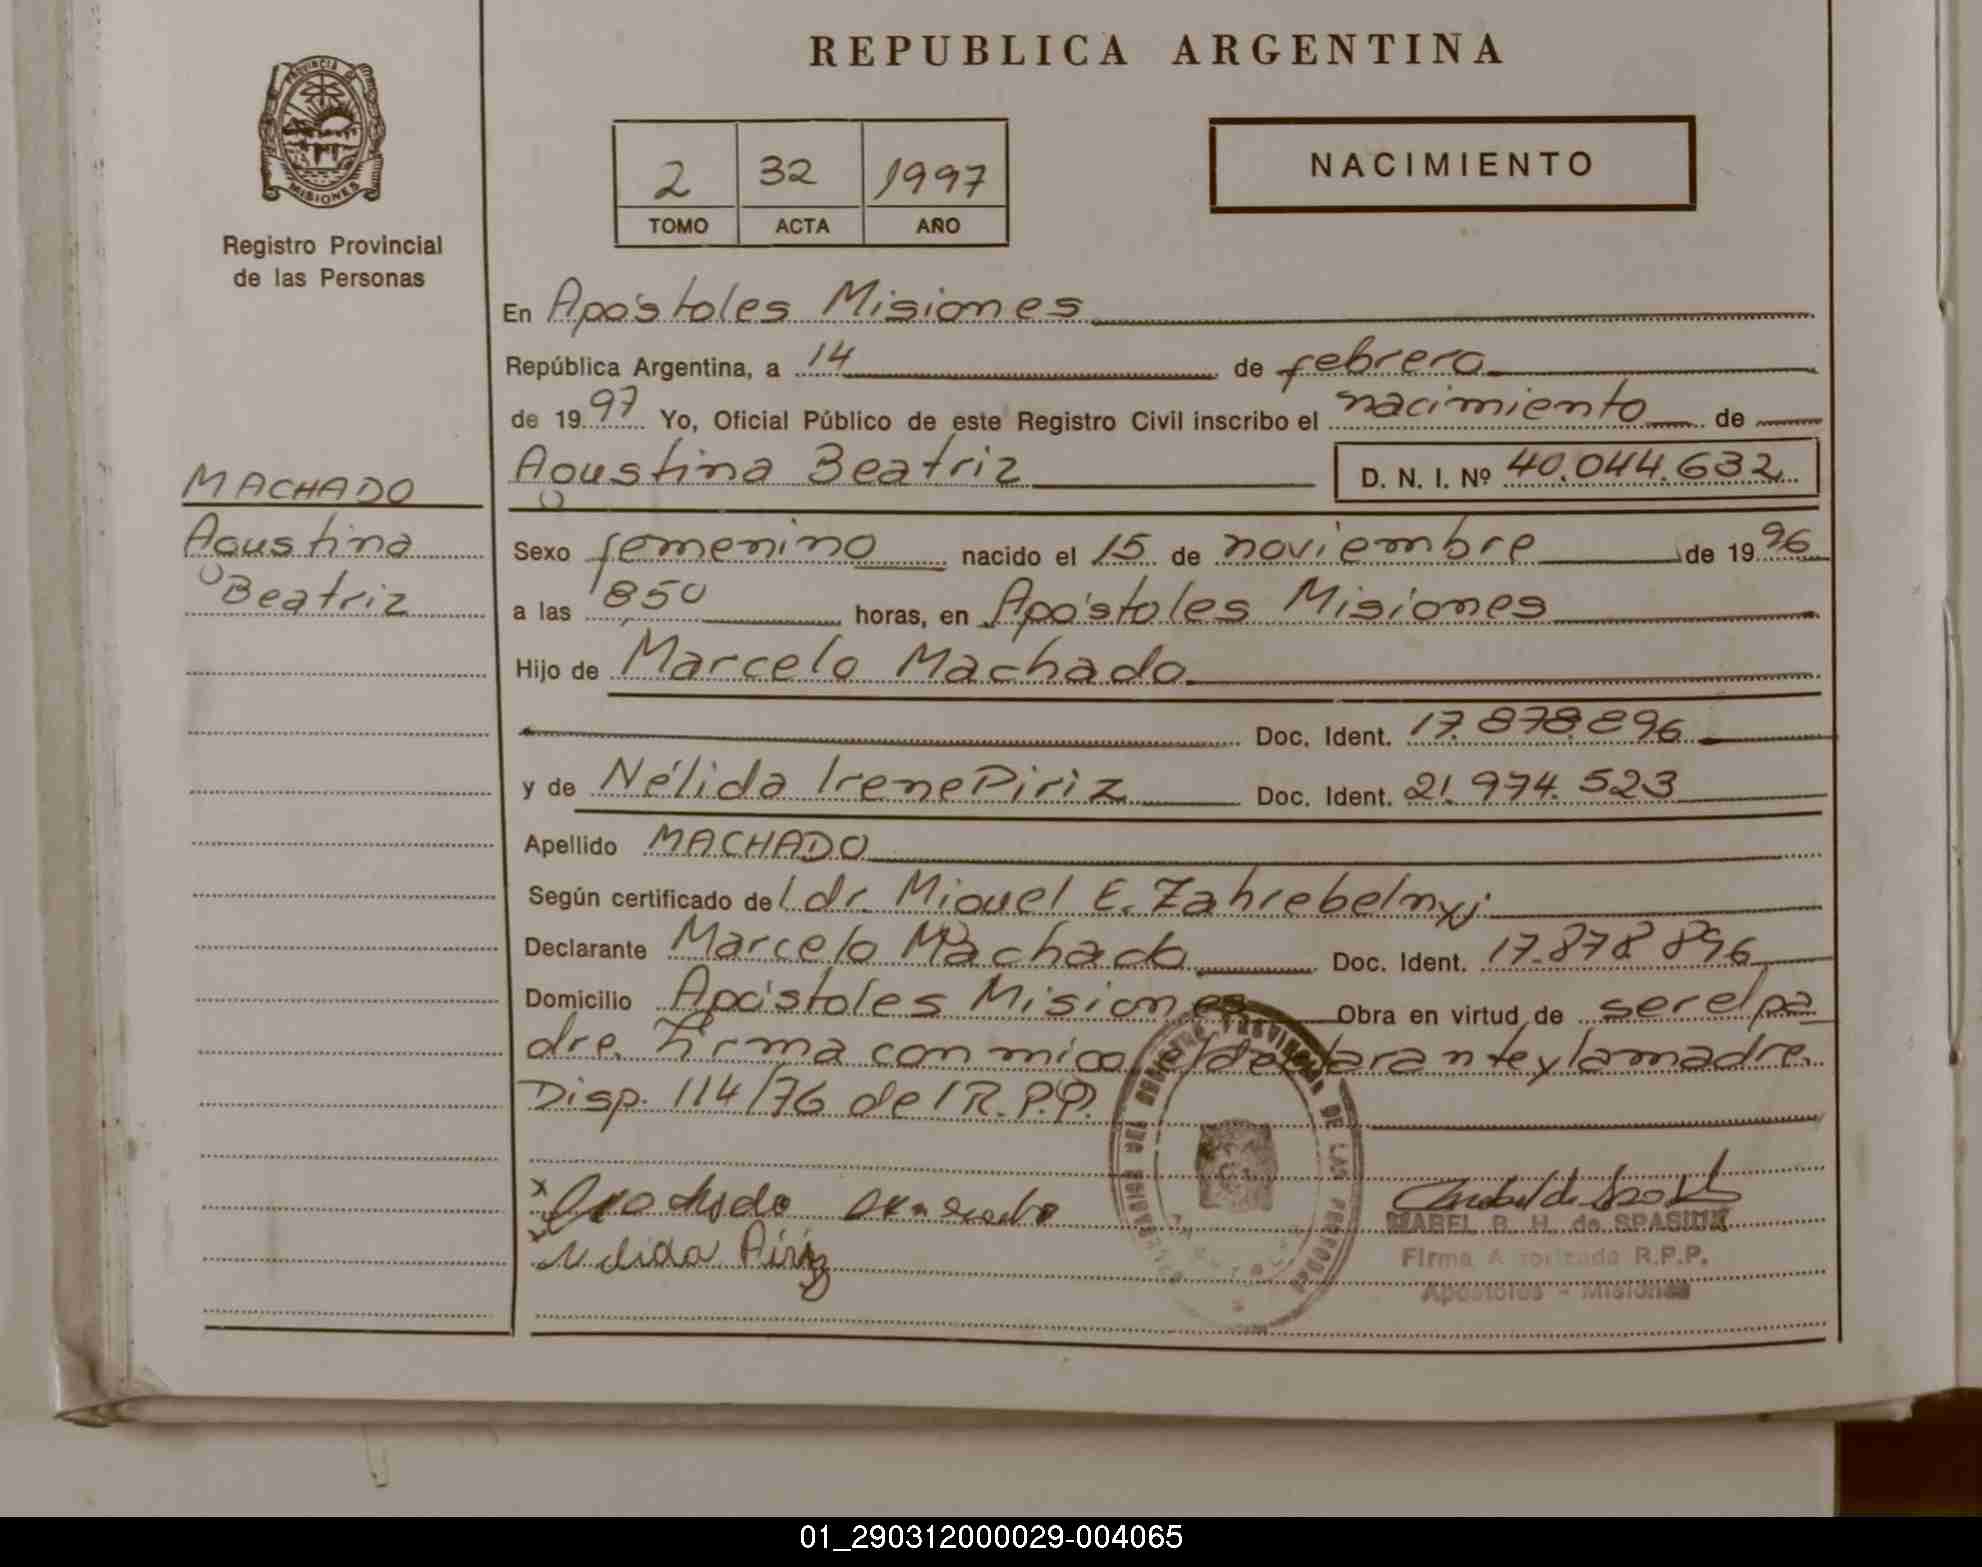 REPUBLICA ARGENTINA
PROVINCIA DE
MISIONES
Registro Provincial
de las Personas
2 32 1997
TOMO ACTA AÑO
NACIMIENTO
En Apóstoles Misiones
República Argentina, a 14 de febrero
de 1997 Yo, Oficial Público de este Registro Civil inscribo el nacimiento de
Agustina Beatriz D. N. I. Nº 40.044.632
MACHADO
Agustina
Beatriz
Sexo femenino nacido el 15 de noviembre de 1996
a las 850 horas, en Apóstoles Misiones
Hijo de Marcelo Machado
Doc. Ident. 17.878.896
y de Nélida Irene Piriz Doc. Ident. 21.974.523
Apellido MACHADO
Según certificado del dr. Miguel E. Zahrebelnyj
Declarante Marcelo Machado Doc. Ident. 17.878.896
Domicilio Apóstoles Misiones Obra en virtud de ser el pa
dre. Firma conmigo el declarante y la madre.
Disp. 114/76 del R.P.P.
DEL REGISTRO PROVINCIAL DE LAS PERSONAS
Nelida Piriz
MABEL B. H. de
Firma Autorizada R.P.P.
Apostoles - Misiones
01_290312000029-004065